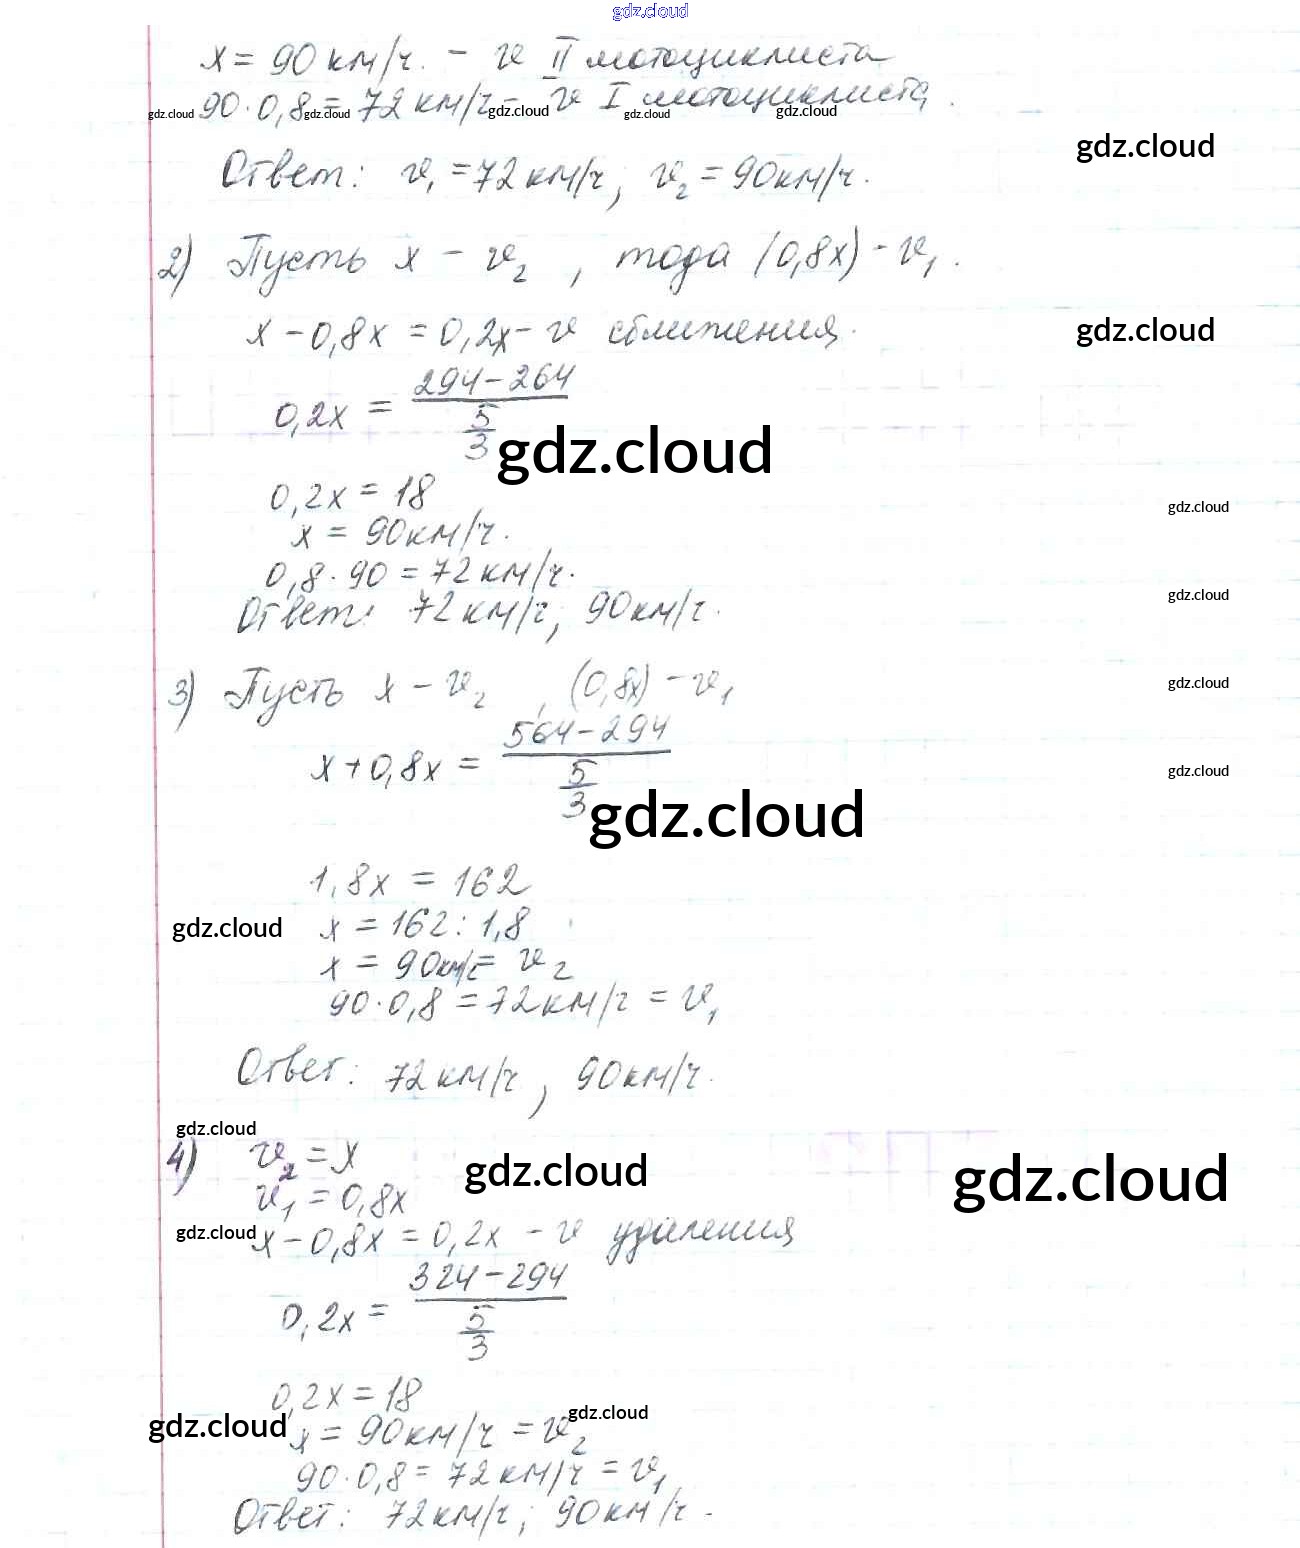 gdz.cloud
x = 90 км/ч. - v II мотоциклиста
90 · 0,8 = 72 км/ч - v I мотоциклиста.
gdz.cloud gdz.cloud gdz.cloud gdz.cloud gdz.cloud
gdz.cloud
Ответ: v₁ = 72 км/ч; v₂ = 90км/ч.
2) Пусть x - v₂, тода (0,8x) - v₁.
x - 0,8x = 0,2x - v сближения.
gdz.cloud
0,2x = (294-264)/(5/3)
gdz.cloud
0,2x = 18
gdz.cloud
x = 90км/ч.
0,8 · 90 = 72 км/ч.
gdz.cloud
Ответ: 72 км/ч; 90км/ч.
3) Пусть x - v₂, (0,8x) - v₁
gdz.cloud
x + 0,8x = (564-294)/(5/3)
gdz.cloud
gdz.cloud
1,8x = 162
gdz.cloud
x = 162 : 1,8
x = 90км/ч = v₂
90 · 0,8 = 72 км/ч = v₁
Ответ: 72 км/ч, 90км/ч.
gdz.cloud
4) v₂ = x
gdz.cloud gdz.cloud
v₁ = 0,8x
gdz.cloud
x - 0,8x = 0,2x - v удаления
0,2x = (324-294)/(5/3)
0,2x = 18
gdz.cloud gdz.cloud
x = 90км/ч = v₂
90 · 0,8 = 72 км/ч = v₁
Ответ: 72км/ч; 90км/ч.